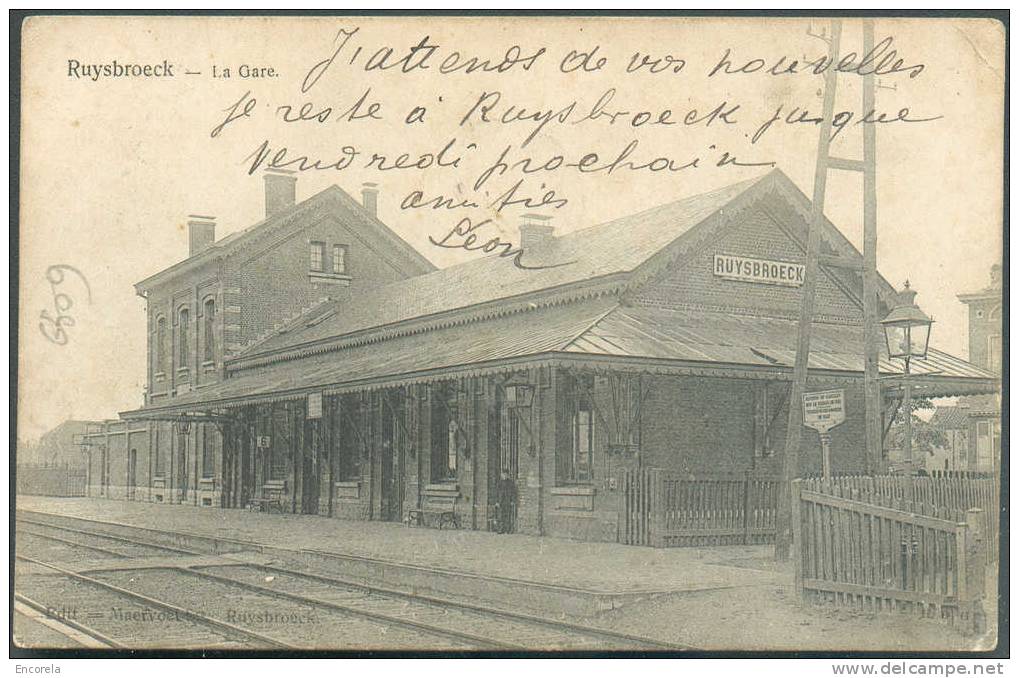 Ruysbroeck – La Gare.
J'attends de vos nouvelles
je reste à Ruysbroeck jusque
Vendredi prochain
amitiés
Léon
RUYSBROECK
6
6099
Edit — Maervoet Ruysbroeck.
Encorela
www.delcampe.net